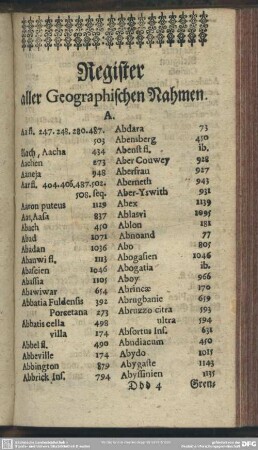 Register
aller Geographischen Nahmen.
A.
Aa fl. 247. 248. 280. 487.
503
Aach, Aacha 434
Aachen 273
Aaneja 948
Aar fl. 404. 406, 487. 502.
508. seq.
Aaron puteus 1129
Aas, Aasa 837
Abach 450
Abad 1071
Abadan 1036
Abauwi fl. 1113
Abascien 1046
Abassia 1105
Abawiwar 614
Abbatia Fuldensis 392
Porcetana 273
Abbatis cella 498
villa 174
Abbel fl. 490
Abbeville 174
Abbington 879
Abbrick Ins. 794
Abdara 73
Abensberg 450
Abenst fl. ib.
Aber Couwey 928
Aberfrau 927
Aberneth 943
Aber-Yswith 931
Abex 1139
Ablasvi 1095
Ablon 181
Abnoand 77
Abo 805
Abogasien 1046
Abogatia ib.
Aboy 966
Abrincæ 170
Abrugbanie 659
Abruzzo citra 593
ultra 594
Absortus Ins. 631
Abudiacum 450
Abydo 1011
Abygaste 1143
Abyssinien 1135
Ddd 4 Grens